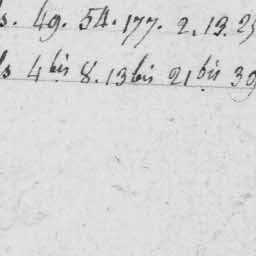 s. 49. 54. 177. 2. 13. 25
s 4 bis 8. 13 bis 21 bis 39